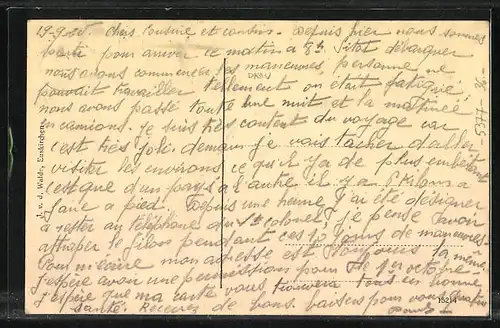 29-9-26. Chers Cousine et cousin. Depuis hier nous sommes
parti pour arriver ce matin a 8h. Sitot débarquer
nous avons commencer les manœuvres, personne ne
pouvait travailler tellement on était fatigué,
nous avons passé toute une nuit et la matinée
en camions. Je suis très content du voyage car
c'est très joli. demain je vais tacher d'aller
visiter les environs ce qu'il y a de plus embêtant
c'est que d'un pays a l'autre il y a 5 kiloms a
faire a pied. Depuis une heure j'ai été désigner
a rester au téléphone du colonel je pense d'avoir
attraper le filon pendant ces 10 jours de manœuvres.
Pour m'écrire mon adresse est toujours la même
j'espère avoir une permissions pour le 1er octobre
j'espère que ma carte vous trouvera tous en bonne
santé. Recevez de bons baisers pour vous
J. v. d. Walde, Euskirchen.
15214